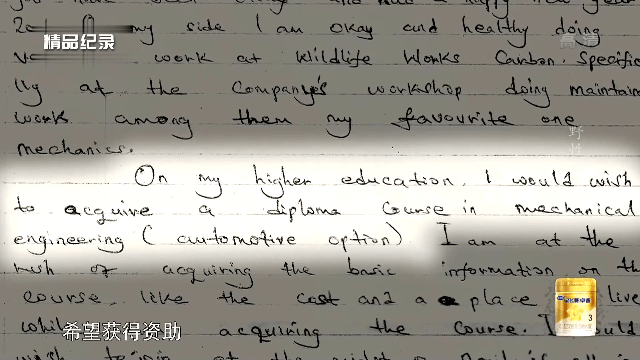 you have been
happy new year
my side I am okay and healthy doing
精品纪录
work at Wildlife Works Carbon. Specific
高清
lly at the Company's workshop doing maintain
work among them my favourite one
mechanics.
On my higher education, I would wish
to acquire a diploma course in mechanical
engineering (automotive option) I am at the
of acquiring the basic information on the
course, like the cost and a place live
while acquiring the course. I would
希望获得资助
wish to join at the
3